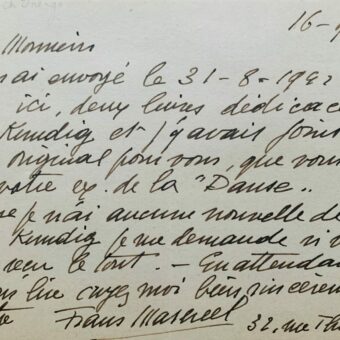 16-9
Monsieur
ai envoyé le 31-8-194
ici, deux livres dédicac
Kundig et j'y avais joins
original pour vous, que vous
votre ex. de la "Danse..
e je n'ai aucune nouvelle de
Kundig je me demande si v
reçu le tout. - En attendan
lire croyez moi bien sincèrem
Frans Masereel 32, rue Th